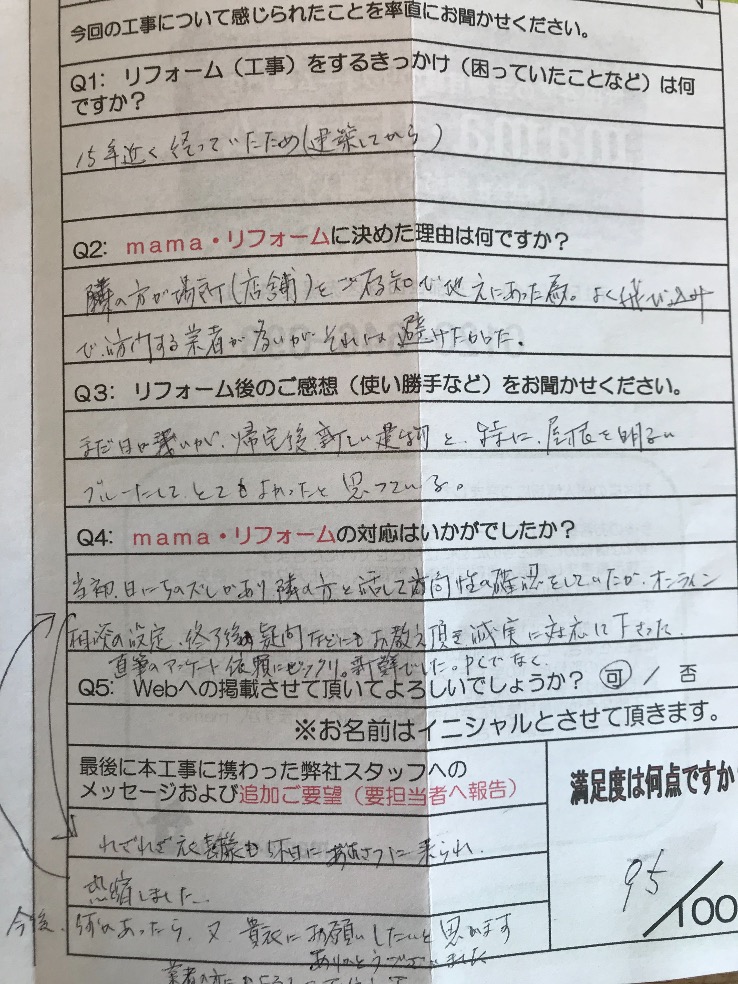 今回の工事について感じられたことを率直にお聞かせください。
Q1: リフォーム（工事）をするきっかけ（困っていたことなど）は何
ですか？
15年近く経っていたため(建築してから)
Q2: mama・リフォームに決めた理由は何ですか？
隣の方が場所(店舗)をご存知で地元にあった為。よく飛び込み
で訪問する業者が多いがそれは避けたかった。
Q3: リフォーム後のご感想（使い勝手など）をお聞かせください。
まだ日は浅いが、帰宅後、新しい建物と、特に、屋根を明るい
ブルーにして、とてもよかったと思っている。
Q4: mama・リフォームの対応はいかがでしたか？
当初、日にちのズレがあり隣の方と話して方向性の確認をしていたが、オンライン
相談の設定、終了後の疑問などにもお教え頂き誠実に対応して下さった。
直筆のアンケート依頼にビックリ。新鮮でした。PCでなく、
Q5: Webへの掲載させて頂いてよろしいでしょうか？ 可 / 否
※お名前はイニシャルとさせて頂きます。
最後に本工事に携わった弊社スタッフへの
メッセージおよび追加ご要望（要担当者へ報告）
満足度は何点ですか
わざわざ 休日にあいさつに来られ、
恐縮しました。
95/100
今後、何かあったら、又 貴社にお願いしたいと思います
ありがとうございました
業者の方に